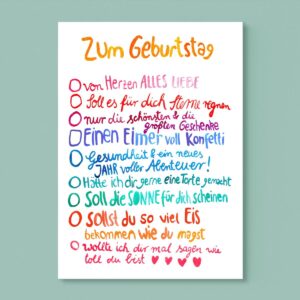 Zum Geburtstag
von Herzen ALLES LIEBE
Soll es für dich Sterne regnen
nur die schönsten & die
größten Geschenke
Einen Eimer voll Konfetti
Gesundheit & ein neues
JAHR voller Abenteuer!
Hätte ich dir gerne eine Torte gemacht
Soll die SONNE für dich scheinen
Sollst du so viel Eis
bekommen wie du magst
wollte ich dir mal sagen wie
toll du bist